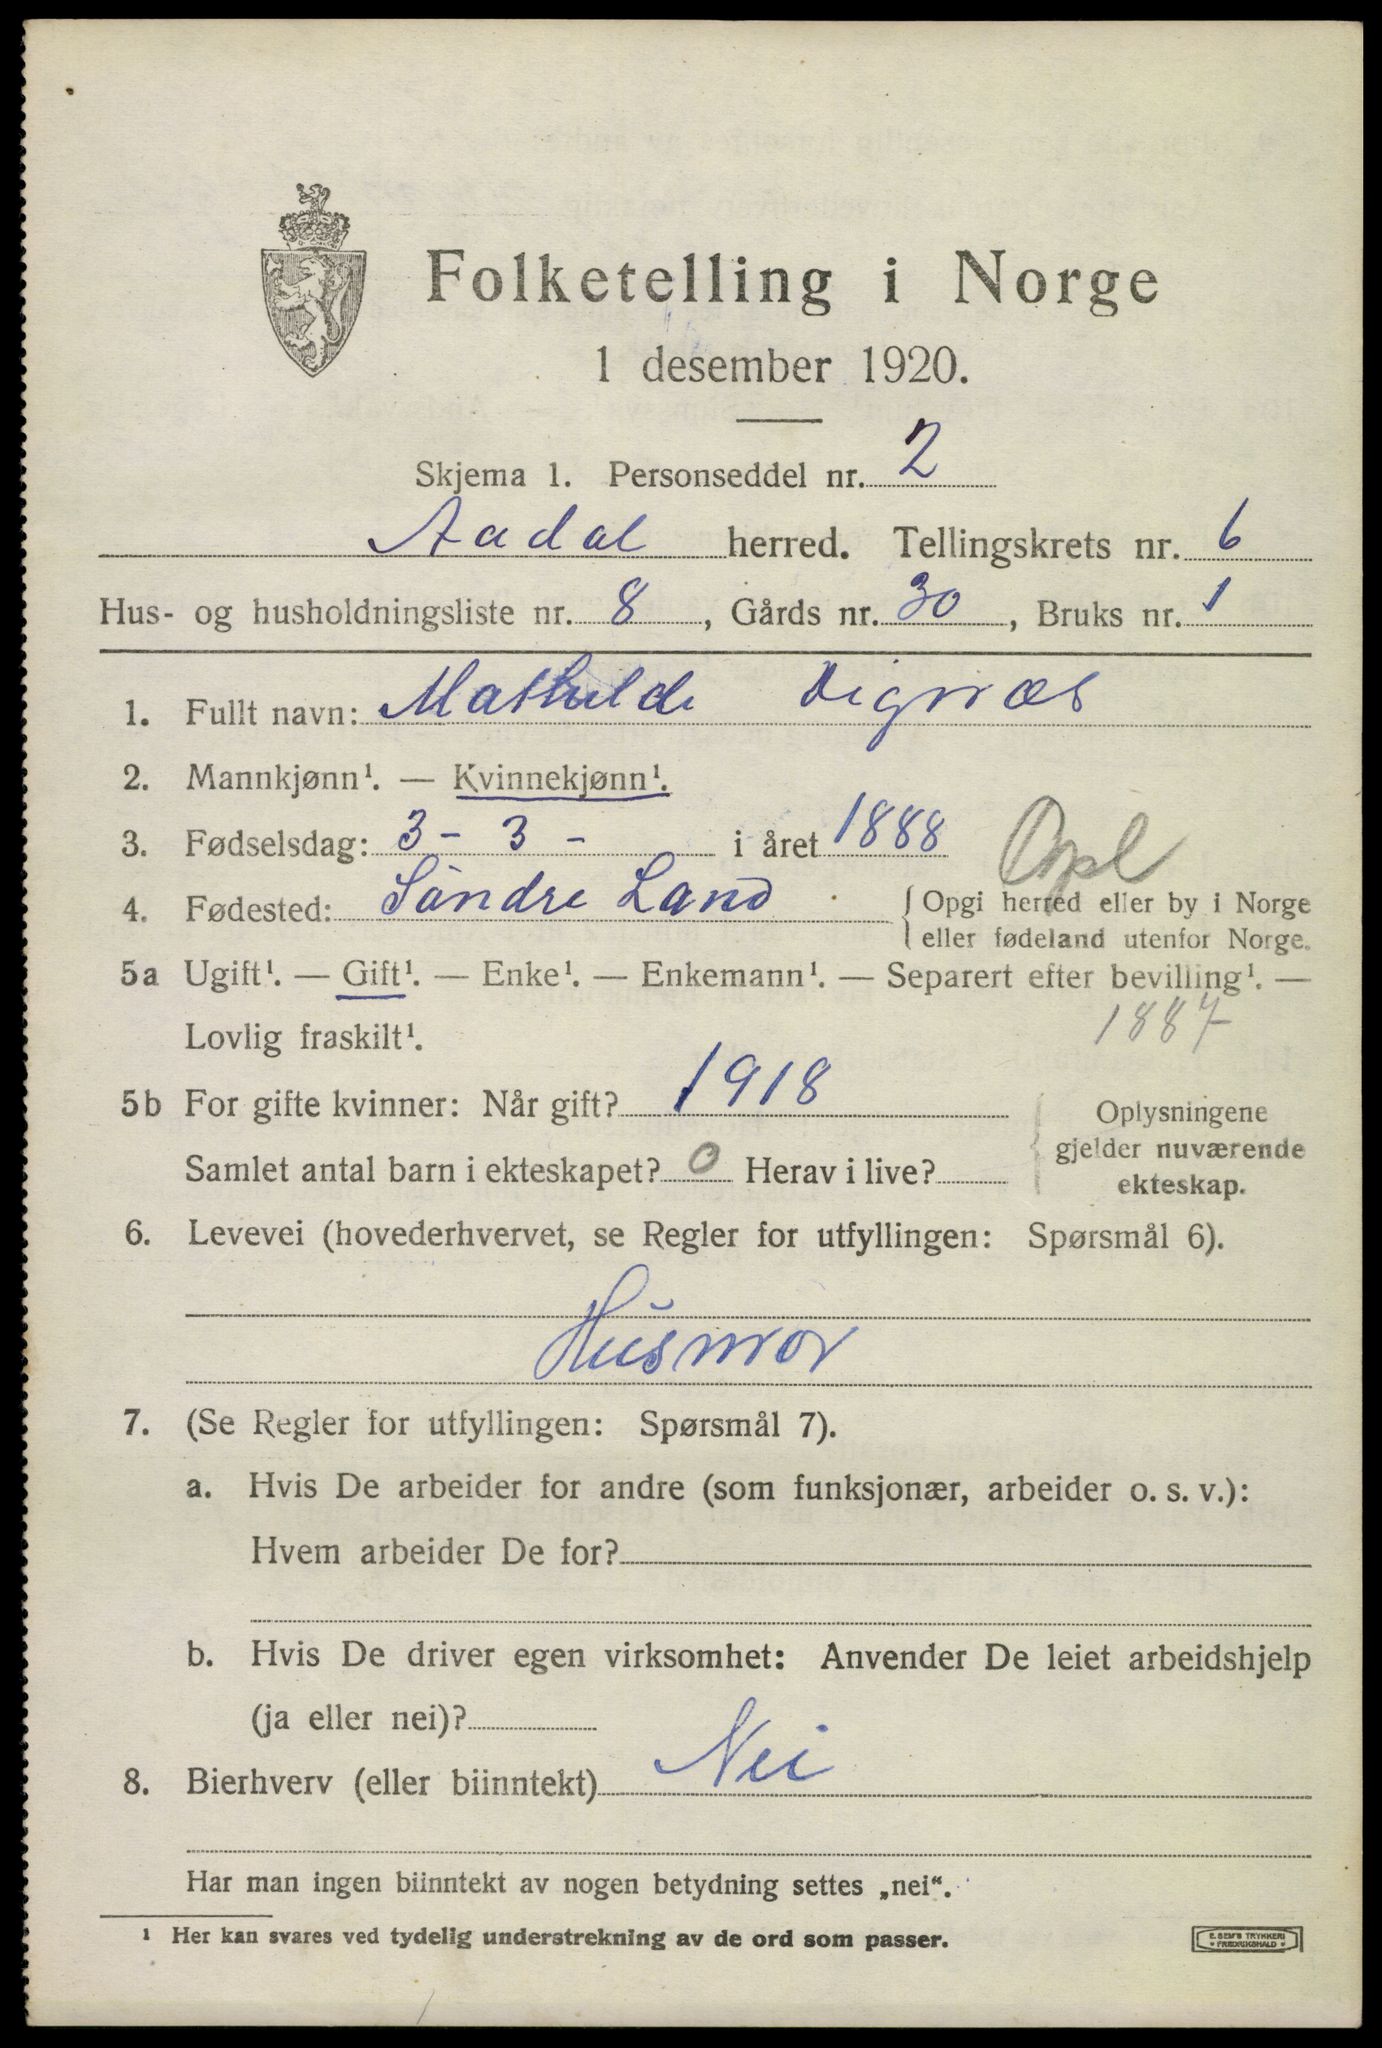 Folketelling i Norge
1 desember 1920.
Skjema 1. Personseddel nr. 2
Aadal herred. Tellingskrets nr. 6
Hus- og husholdningsliste nr. 8, Gårds nr. 30, Bruks nr. 1
1. Fullt navn: Mathilde Vignæs
2. Mannkjønn¹. — Kvinnekjønn¹.
3. Fødselsdag: 3 - 3 - i året 1888
Opl
4. Fødested: Söndre Land { Opgi herred eller by i Norge
eller fødeland utenfor Norge.
5a Ugift¹. — Gift¹. — Enke¹. — Enkemann¹. — Separert efter bevilling¹. —
Lovlig fraskilt¹. 1887
5b For gifte kvinner: Når gift? 1918
Oplysningene
gjelder nuværende
ekteskap.
Samlet antal barn i ekteskapet? 0 Herav i live?
6. Levevei (hovederhvervet, se Regler for utfyllingen: Spørsmål 6).
Husmor
7. (Se Regler for utfyllingen: Spørsmål 7).
a. Hvis De arbeider for andre (som funksjonær, arbeider o. s. v.):
Hvem arbeider De for?
b. Hvis De driver egen virksomhet: Anvender De leiet arbeidshjelp
(ja eller nei)?
8. Bierhverv (eller biinntekt) Nei
Har man ingen biinntekt av nogen betydning settes „nei“.
¹ Her kan svares ved tydelig understrekning av de ord som passer.
E. SEM'S TRYKKERI
* FREDRIKSHALD *